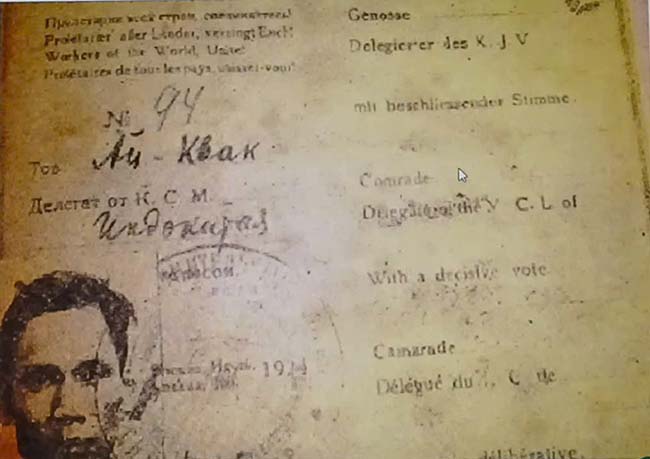 Пролетарии всех стран, соединяйтесь!
Proletarier aller Länder, vereinigt Euch!
Workers of the World, Unite!
Prolétaires de tous les pays, unissez-vous!
№ 94
Тов Ай - Квак
Делегат от К. С. М.
Индокитая
голосом.
Москва, 1924
Genosse
Delegierter des K. J. V
mit beschliessender Stimme.
Comrade
Delegate of the Y. C. L. of
With a decisive vote
Camarade
Délégué du C de
délibérative.